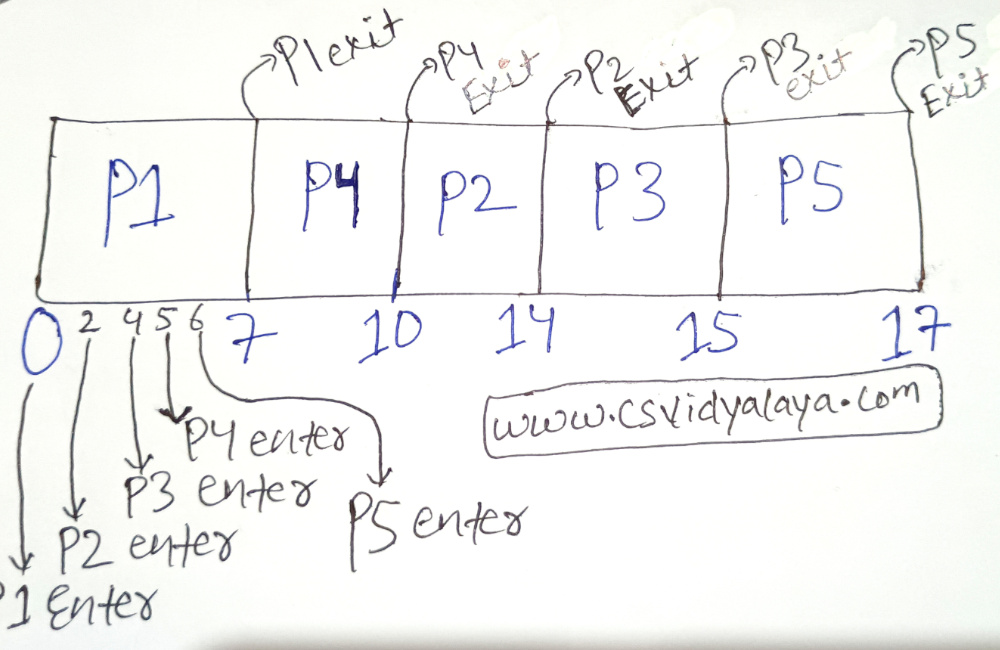 P1 exit
P4 Exit
P2 Exit
P3 exit
P5 Exit
P1 P4 P2 P3 P5
0 2 4 5 6 7 10 14 15 17
www.csvidyalaya.com
P4 enter
P3 enter
P5 enter
P2 enter
P1 Enter